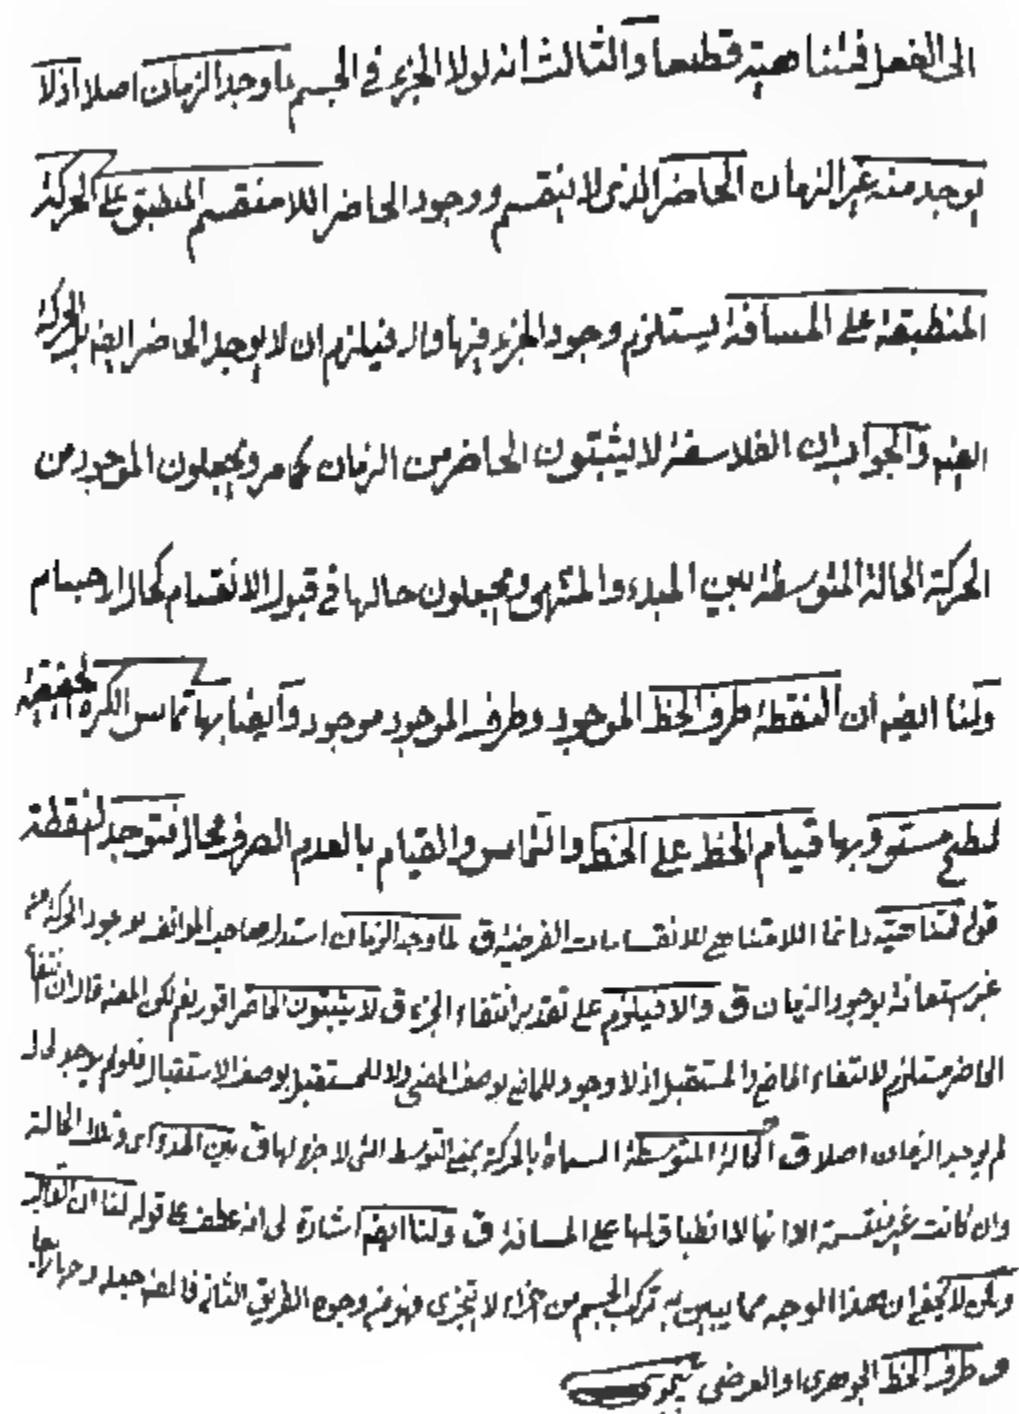 الى الفعل فمتناهية قطعا والثالث انه لولا الجزء في الجسم ما وجد الزمان اصلا اذ لا
يوجد منه غير الزمان الحاضر الذى لا ينقسم ووجود الحاضر اللامنقسم المنطبق على الحركة
المنطبقة على المسافة يستلزم وجود الجزء فيها والا فيلزم ان لا يوجد الحاضر ايضه بل الحركة
ايضه والجواب ان الفلاسفة لا يثبتون الحاضر من الزمان كما مر ويجعلون الموجود من
الحركة الحالة المتوسطة بين المبدء والمنتهى ويجعلون حالها في قبول الانقسام كحال الاجسام
ولنا ايضه ان النقطة طرف الخط الموجود وطرف الموجود موجود وايضا بها تماس الكرة الحقيقية
لسطح مستو وبها قيام الخط على الخط والتماس والقيام بالعدم الصرف محال فتوجد النقطة
قوله فمتناهية دائما اللامتناهى للانقسامات الفرضية ق لما وجد الزمان استدل صاحب المواقف بوجود الحركة من
غير استعانة بوجود الزمان ق والا فيلزم على تقدير انتفاء الجزء ق لا يثبتون الحاضر اقول نعم لكن المعنه قال ان انتفاء
الحاضر مستلزم لانتفاء الماضى والمستقبل اذ لا وجود للماضى بوصف المضى ولا للمستقبل بوصف الاستقبال فلو لم يوجد الحال
لم يوجد الزمان اصلا ق الحالة المتوسطة المسماة بالحركة بمعنى التوسط التى لا جزء لها ق بين المبدء اى وتلك الحالة
وان كانت غير منقسمة الا انها لا انطباق لها على المسافة ق ولنا ايضه اشارة الى انه عطف على قوله لنا ان القابل
ولكن لا يخفى ان هذا الوجه مما يبين به تركب الجسم من اجزاء لا تتجزى فهو من وجوه الطريق الثانى فالمعنه جعله وجها رابعا
ق طرف الخط الجوهرى او العرضى